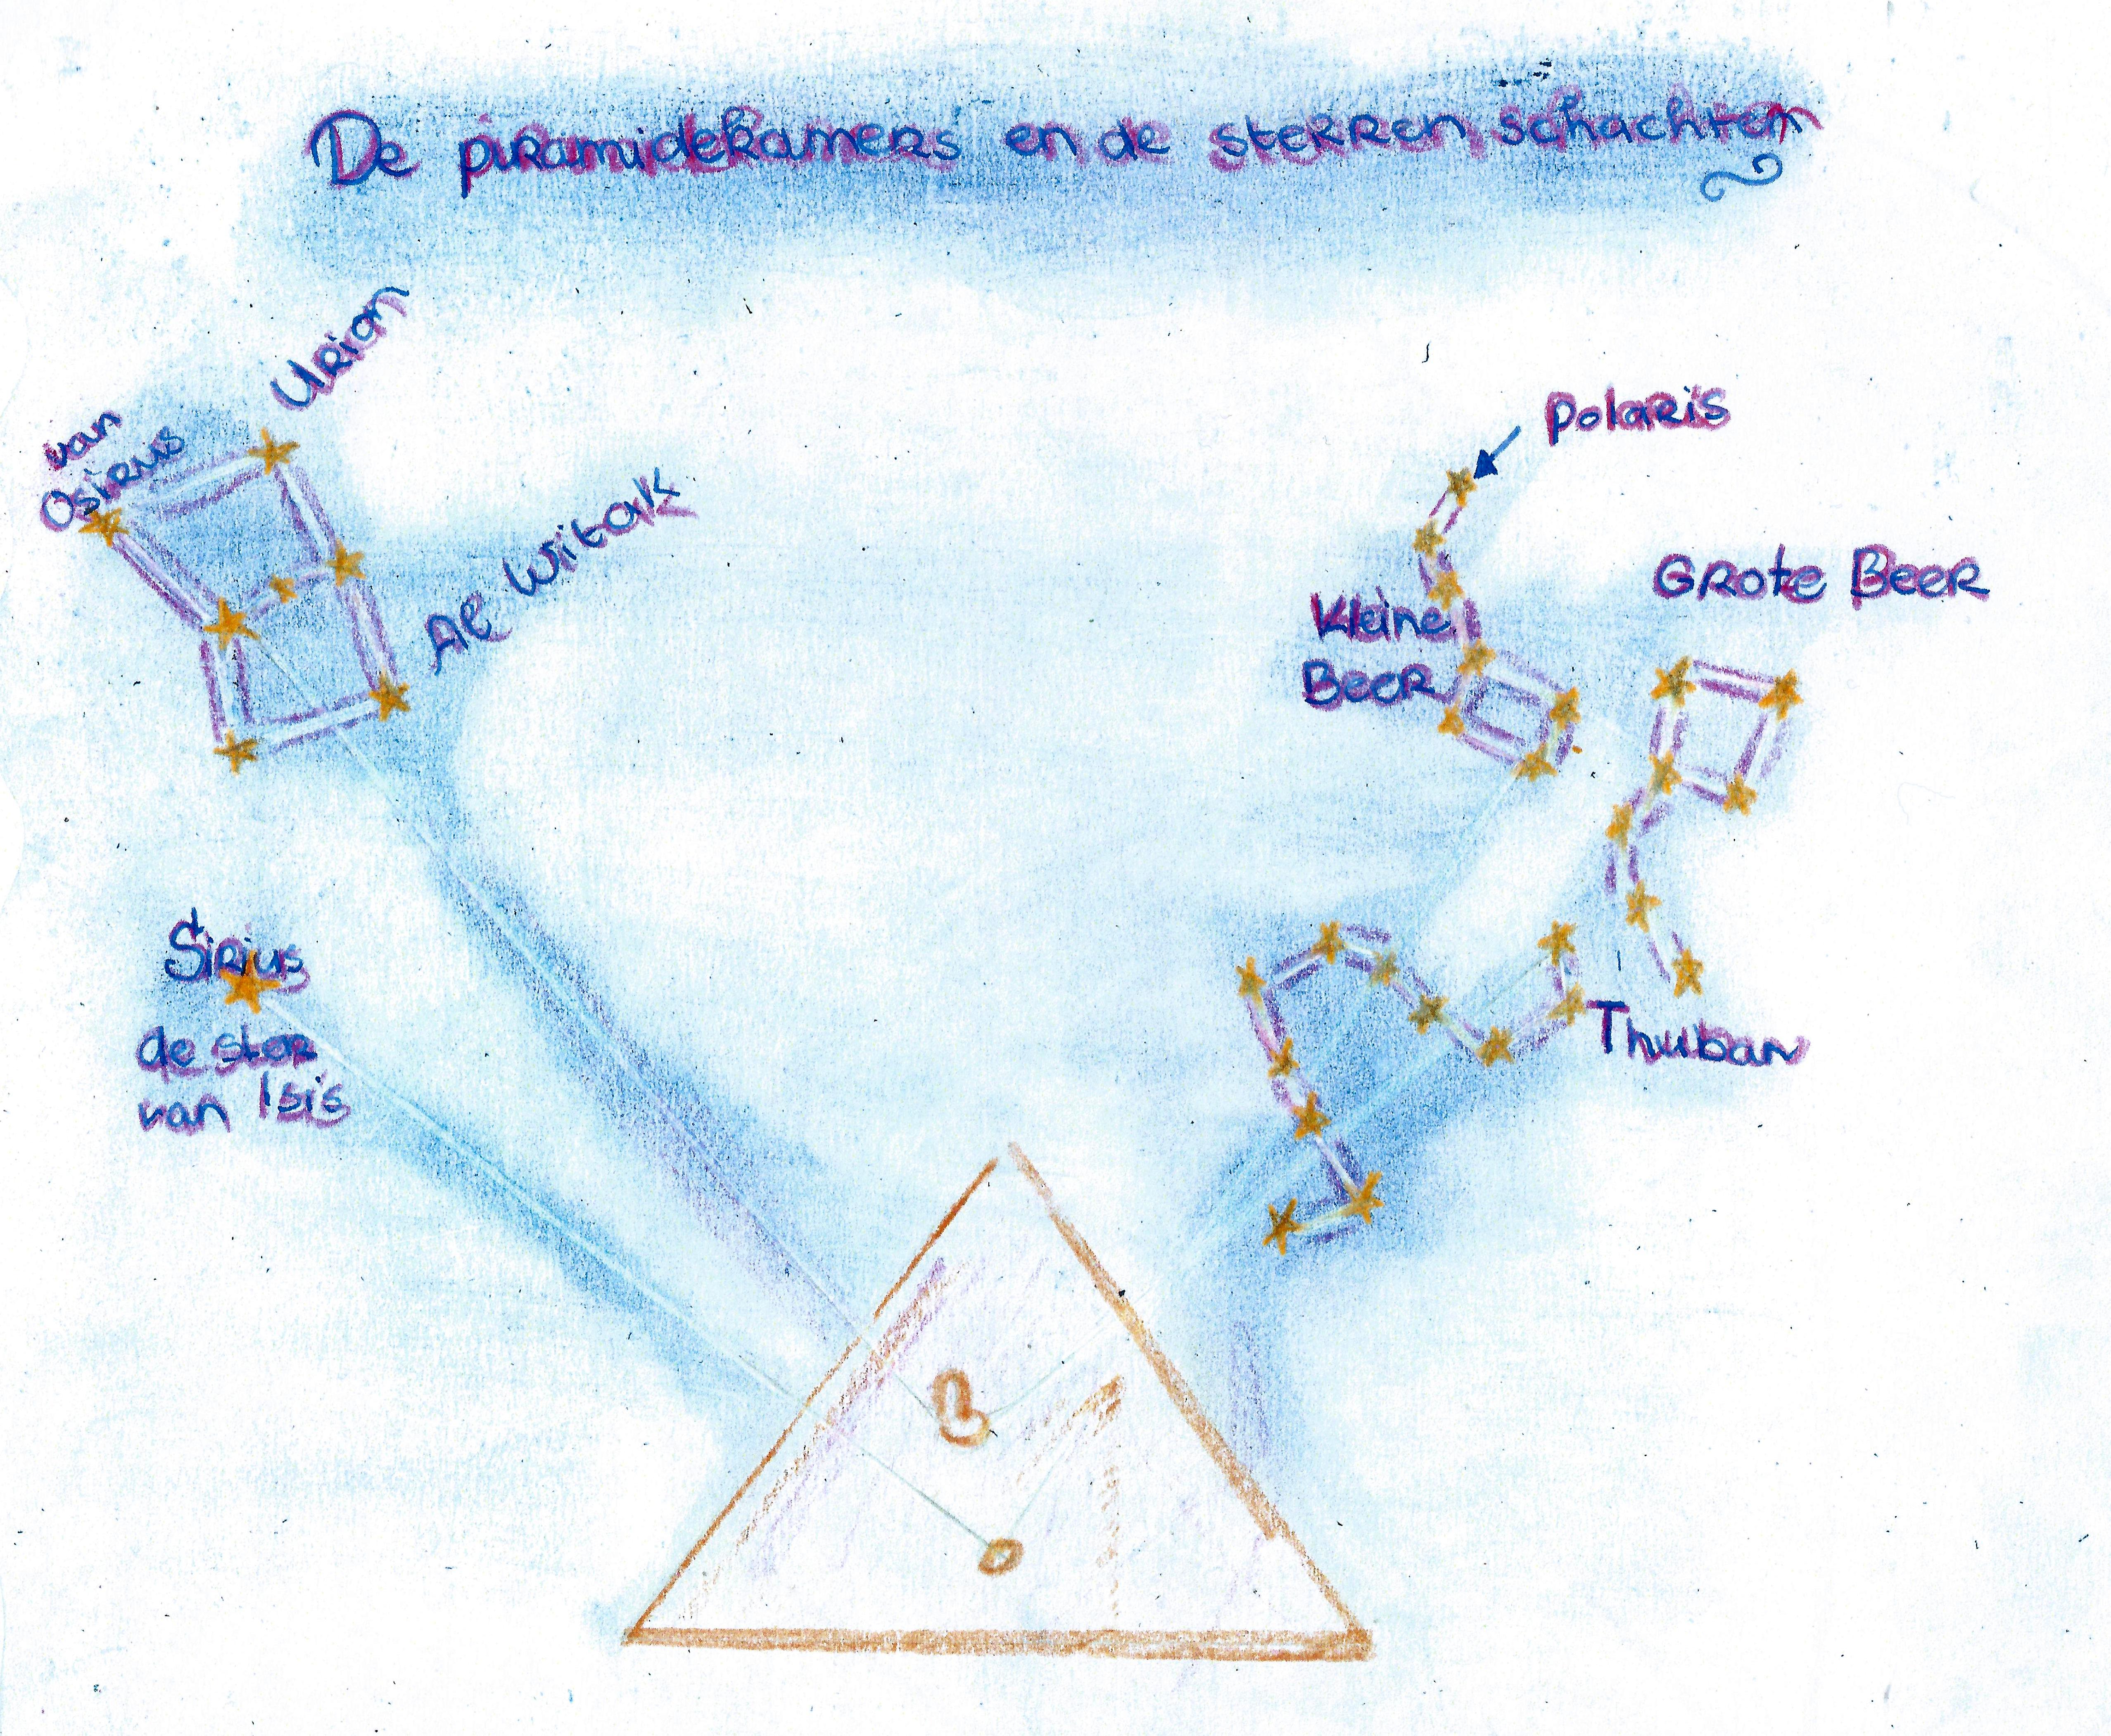 De piramidekamers en de sterren schachten
Urion
van
Osirus
Al Witak
Polaris
Kleine
Beer
Grote Beer
Sirius
de ster
van Isis
Thuban